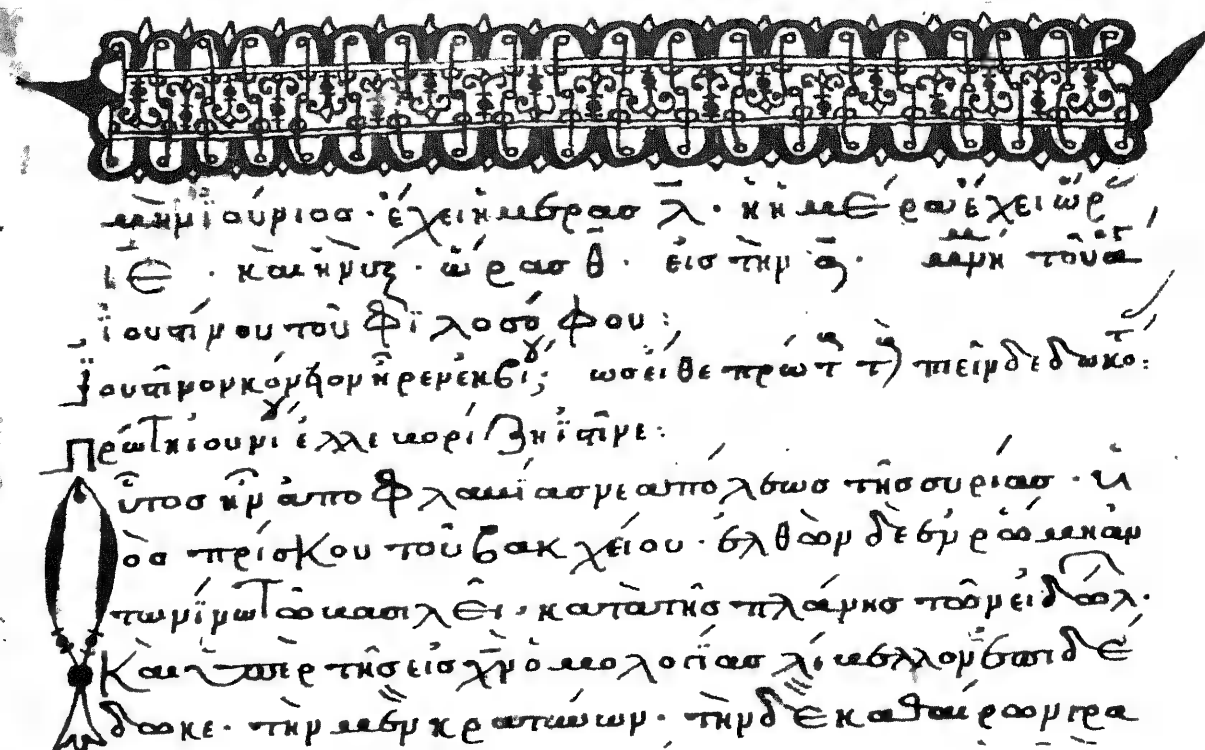 μὴν ἰούνιος · ἔχει ἡμέρας λ · ἡ ἡμέρα ἔχει ὥρ
ιε · καὶ ἡ νὺξ · ὥρας θ · εἰς τὴν α · μνή τοῦ ἁγ
ἰουστίνου τοῦ φιλοσόφου :
ἰουστῖνον κώνειον ἦρεν ἐκ βίου ὡς εἴθε πρῶτ πιεῖν δεδωκότ :
πρώτῃ ἰουνίου
οὗτος ἦν ἀπὸ φλαυΐας νέας πόλεως τῆς συρίας · υἱ
ὸς πρίσκου τοῦ βακχείου · ἐλθὼν δὲ ἐν ῥώμῃ ἀν
τωνίνω τῶ βασιλεῖ · κατὰ τῆς πλάνης τῶν εἰδώλ ·
καὶ ὑπὲρ τῆς εἰς χν ὁμολογίας λίβελλον ἐπιδέ
δωκε · τὴν μὲν κρατύνων · τὴν δὲ καθαίρων